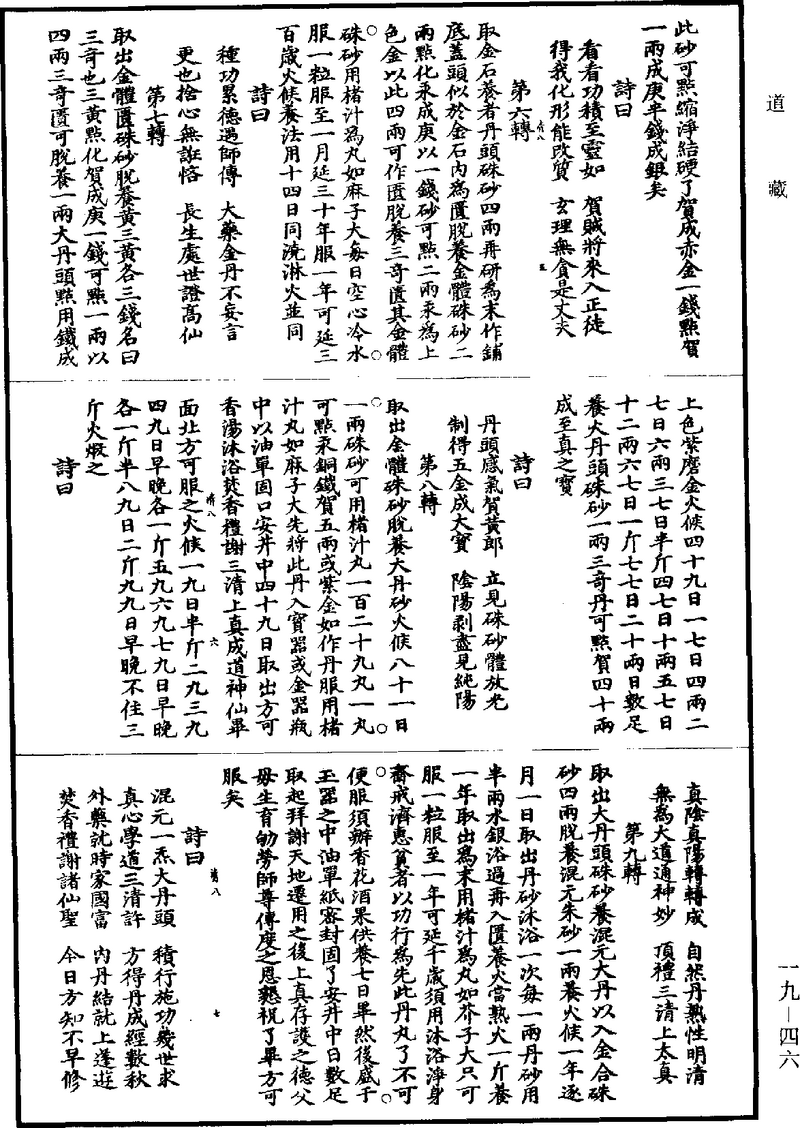 道藏
此砂可點縮淨結硬了賀成赤金一錢點賀
一兩成庚半錢成銀矣
詩曰
看看功積至靈如　賀賊將來入正徒
得我化形能改質　玄理無貪是丈夫
第六轉
取金石養者丹頭硃砂四兩再研為末作鋪
底蓋頭似於金石內為匱脫養金體硃砂二
兩點化汞成庚以一錢砂可點二兩汞為上
色金以此四兩可作匱脫養三奇匱其金體
硃砂用楮汁為丸如麻子大每日空心冷水
服一粒服至一月延三十年服一年可延三
百歲火候養法用十四日同澆淋火並同
詩曰
種功累德過師傳　大藥金丹不妄言
更也捨心無誑悋　長生處世證高仙
第七轉
取出金體匱硃砂脫養黃三黃各三錢名曰
三奇也三黃點化賀成庚一錢可點一兩以
四兩三奇匱可脫養一兩大丹頭點用鐵成
上色紫磨金火候四十九日一七日四兩二
七日六兩三七日半斤四七日十兩五七日
十二兩六七日一斤七七日二十兩日數足
養大丹頭硃砂一兩三奇丹可點賀四十兩
成至真之寶
詩曰
丹頭感氣賀黃郎　立見硃砂體放光
制得五金成大寶　陰陽剥盡見純陽
第八轉
取出金體硃砂脫養大丹砂火候八十一日
一兩硃砂可用楮汁丸一百二十九丸一丸
可點汞銅鐵賀五兩或紫金如作丹服用楮
汁丸如麻子大先將此丹入寶器或金器瓶
中以油單固口安井中四十九日取出方可
香湯沐浴焚香禮謝三清上真成道神仙畢
面北方可服之火候一九日半斤二九三九
四九日早晚各一斤五九六九七九日早晚
各一斤半八九日二斤九九日早晚不住三
斤火煅之
詩曰
真陰真陽轉轉成　自然丹熟性明清
無為大道通神妙　頂禮三清上太真
第九轉
取出大丹頭硃砂養混元大丹以入金合硃
砂四兩脫養混元朱砂一兩養火候一年逐
月一日取出丹砂沐浴一次每一兩丹砂用
半兩水銀浴過再入匱養火當熟火一斤養
一年取出為末用楮汁為丸如芥子大只可
服一粒服至一年可延千歲須用沐浴淨身
齋戒濟惠貧者以功行為先此丹丸了不可
便服須辦香花酒果供養七日畢然後盛于
玉器之中油單紙密封固了安井中日數足
取起拜謝天地還用之後上真存護之德父
母生育劬勞師尊傳度之恩懇祝了畢方可
服矣
詩曰
混元一炁大丹頭　積行施功幾世求
真心學道三清許　方得丹成經數秋
外藥就時家國富　內丹結就上蓬遊
焚香禮謝諸仙聖　今日方知不早修
一九－四六